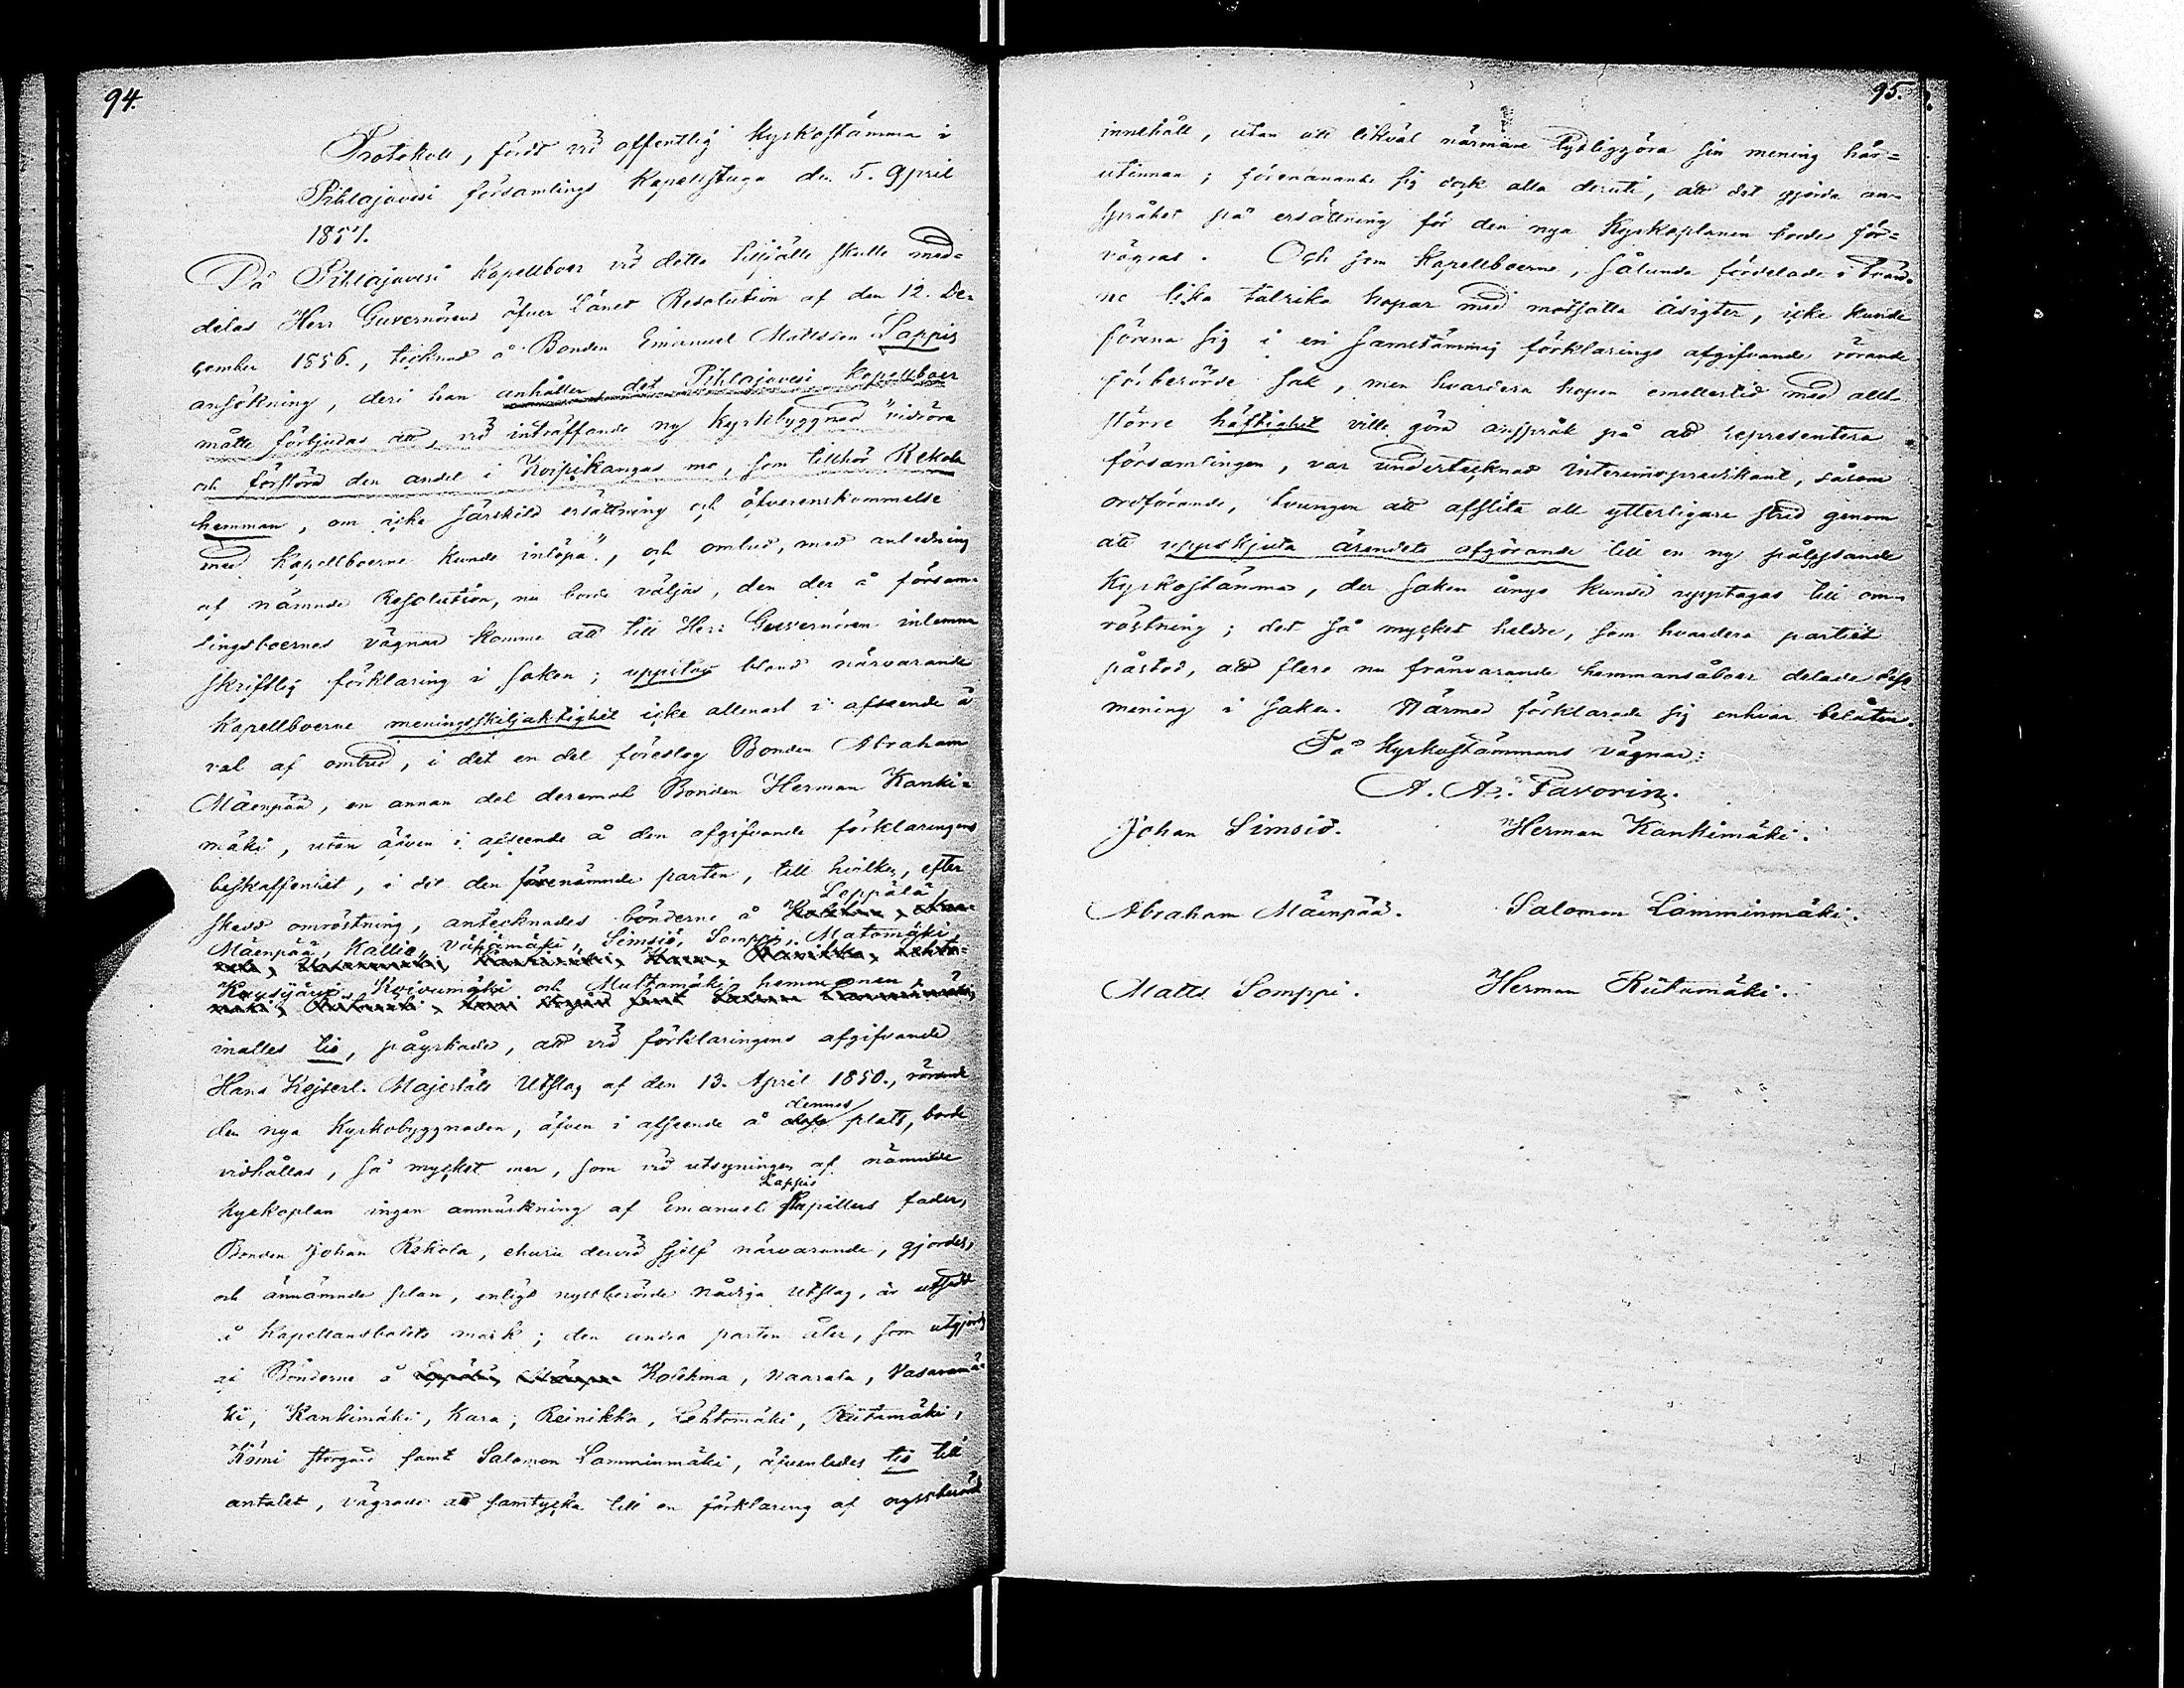 94.
Protokoll, fördt vid offentlig Kyrkostämma i
Pihlajavesi församlings Kapellstuga den 5. April
1857.
Då Pihlajavesi Kapellboer vid detta tillfälle skulle med-
delas Herr Guvernörens öfver Länet Resolution af den 12. De-
cember 1856., tecknad å Bonden Emanuel Mattsson Lappis
ansökning, deri han anhåller, det Pihlajavesi kapellboer
måtte förbjudas att, vid inträffande ny kyrkbyggnad "vidröra
och förstöra den andel i Koipikangas mo, som tillhör Rekola
hemman, om icke särskild ersättning och öfverenskommelse
med Kapellboerne kunde inlöpa", och ombud, med anledning
af nämnde Resolution, nu borde väljas, den der å försam-
lingsboernes vägnar komme att till Herr Guvernören inlemna
skriftlig förklaring i saken; uppstod bland närvarande
Kapellboerne meningsskiljaktighet icke allenast i afseende å
val af ombud, i det en del föreslog Bonden Abraham
Mäenpää, en annan del deremot Bonden Herman Kanki-
mäki, utan äfven i afseende å den afgifvande förklaringens
beskaffenhet, i det den förenämnde parten, till hvilken, efter
skedd omröstning, antecknades bönderne å Leppälä,
Mäenpää, Kallio, Vähämäki, Simsiö, Somppi, Matomäki,
Kuusijärvi, Koivumäki och Multamäki hemmanen,
inalles tio, påyrkade, att vid förklaringens afgifvande
Hans Kejserl. Majestäts Utslag af den 13. April 1850., rörande
den nya Kyrkobyggnaden, äfven i afseende å dennes plats, borde
vidhållas, så mycket mer, som vid utsyningen af nämnde
Kyrkoplan ingen anmärkning af Emanuel Lappis fader,
Bonden Johan Rekola, ehuru dervid sjelf närvarande, gjordes,
och ännämnde plan, enligt nyssberörde nådiga Utslag, är utsedd
å Kapellansbolets mark; den andra parten åter, som utgjordes
af Bönderne å Kolehma, Naarala, Vasaramä-
ki, Kankimäki, Kara, Reinikka, Lehtomäki, Riitamäki,
Kömi storgård samt Salomon Lamminmäki, äfvenledes tio till
antalet, vägrade att samtycka till en förklaring af nyssberörd
95.
innehåll, utan att likväl närmare tydliggöra sin mening här-
utinnan; förenanande sig dock alla deruti, att det gjorda an-
språket på ersättning för den nya Kyrkoplanen borde för-
vägras. Och som Kapellboerne, sålunda fördelade i tvän-
ne lika talrika hopar med motsatta åsigter, icke kunde
förena sig i en samstämmig förklarings afgifvande rörande
förberörde sak, men hvardera hopen emellertid med allt
större häftighet ville göra anspråk på att representera
församlingen, var undertecknad interimspredikant, såsom
ordförande, tvungen att afslita all ytterligare strid genom
att uppskjuta ärendets afgörande till en ny pålysande
Kyrkostämma, der saken ånyo kunde upptagas till om-
röstning; det så mycket heldre, som hvardera partiet
påstod, att flere nu frånvarande hemmansåboer delade dess
mening i saken. Härmed förklarade sig enhvar belåten.
På Kyrkostämmans vägnar:
A. Ad. Favorin.
Johan Simsiö. Herman Kankimäki.
Abraham Mäenpää. Salomon Lamminmäki.
Matts Somppi. Herman Riitamäki.